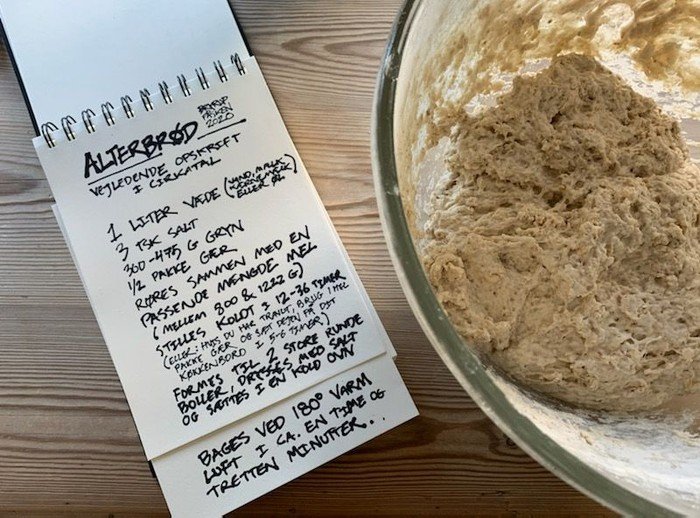 ALTERBRØD
PÅSKEN
2020
VEJLEDENDE OPSKRIFT
I CIRKATAL
1 LITER VÆDE (VAND, MÆLK,
ELLER ØL)
3 TSK SALT
300-475 G GRYN
1/2 PAKKE GÆR
RØRES SAMMEN MED EN
PASSENDE MENGDE MEL
(MELLEM 800 & 1222 G)
STILLES KOLDT I 12-36 TIMER
(ELLER: HVIS DU HAR TRAVLT, BRUG 1 HEL
PAKKE GÆR OG SÆT DEJEN PÅ DIT
KØKKENBORD I 5-6 TIMER)
FORMES TIL 2 STORE RUNDE
BOLLER, DRYSSES MED SALT
OG SÆTTES I EN KOLD OVN
BAGES VED 180° VARM
LUFT I CA. EN TIME OG
TRETTEN MINUTTER...